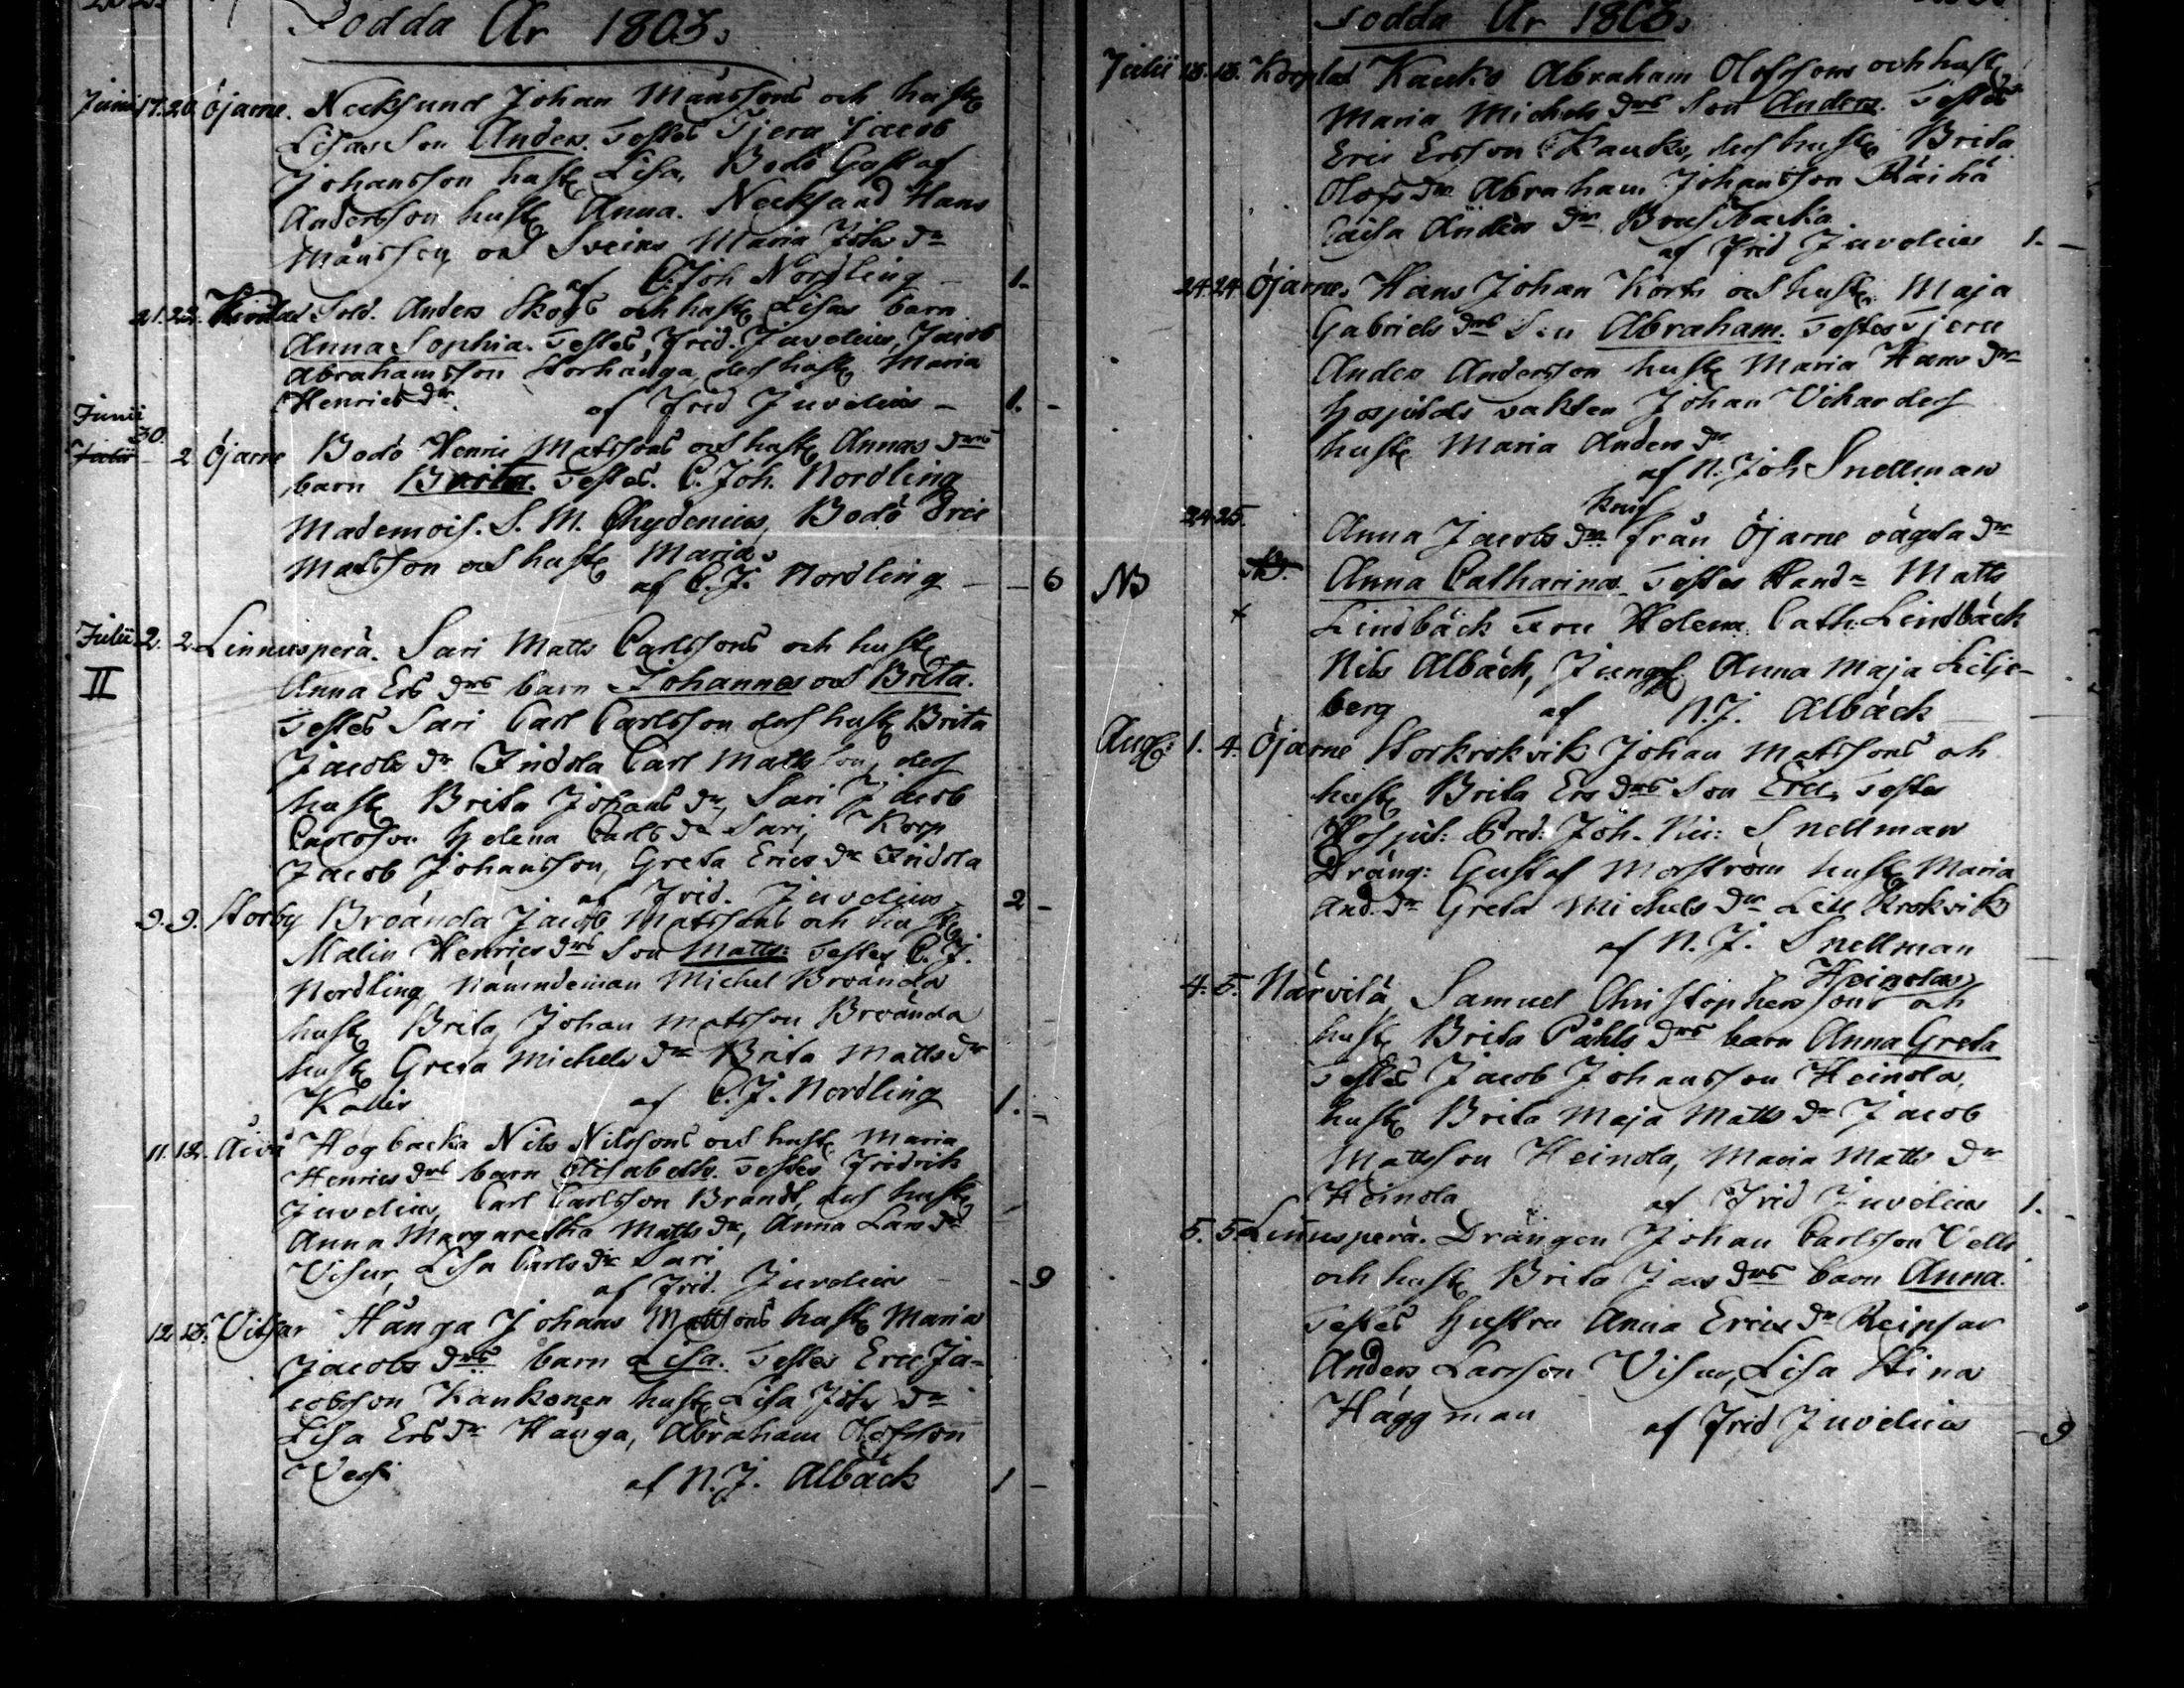 Födda År 1803.
Junii 17. 20. Öjarne. Necksund Johan Månssons och hust
Lisas Son Anders. Testes Tjeru Jacob
Johansson hust Lisa, Bodö Gustaf
Andersson hust Anna. Necksund Hans
Månsson och Sveins Maria Joh dr
af C. Joh Nordling 1. -
21. 22. Sold. Anders Skogs och hust Lisas barn
Anna Sophia. Testes, Frid. Juvelius, Jacob
Abrahamsson Storhånga, des hust Maria
Henrics dr. af Frid Juvelius - 1. -
Junii
30.
Julii - 2 Öjarne Bodö Henric Matssons och hust Annas drs
barn Brita. Testes. C. Joh. Nordling
Mademois. S. M. Chydenius, Bodö Eric
Matsson och hust Maria.
af C. J. Nordling - - 6
Julii 2. 2. Linnusperä. Sari Matts Carlssons och hust
II Anna Ers drs barn Johannes och Brita.
Testes Sari Carl Carlsson des hust Brita
Jacobs dr Indola Carl Matts son, des
hust Brita Johans dr, Sari Jacob
Carlsson Helena Carls dr Sari, Korp
Jacob Johansson, Greta Erics dr Indola
af Frid. Juvelius 2 -
9. 9. Storby Broända Jacob Matssons och hust
Malin Henrics drs Son Matts: Testes C. J.
Nordling Nämndeman Michel Broända
hust Brita, Johan Matsson Broända
hust Greta Michels dr Brita Matts dr
Kallis af C. J. Nordling 1. -
11. 12. Högbacka Nils Nilssons och hust Maria
Henrics drs barn Elisabeth. Testes Fridrik
Juvelius, Carl Carlsson Brandt, des hust
Anna Margaretha Matts dr, Anna Lars dr
Visur, Lisa Carls dr Sari,
af Frid. Juvelius - - 9
12. 13. Vitsar Hånga Johans Mattsons hust Maria
Jacobs drs barn Lisa. Testes Eric Ja-
cobsson Kankonen hust Lisa Joh dr
Lisa Ers dr Hånga, Abraham Olofsson
af N. J. Albäck 1 -
Födda År 1803.
Julii 18. 18. Korplax Kauko Abraham Olofssons och hust
Maria Michels drs Son Anders. Testes
Eric Ersson Kauko, des hust Brita
Olofs dr Abraham Johansson Räihä
Caisa Anders dr Brusibacka
af Frid Juvelius 1. -
24. 24. Öjarne. Hans Johan Korts och hust Maja
Gabriels drs Son Abraham. Testes Tjeru
Anders Andersson hust Maria Hans dr
Hospitals vakten Johan Vikar des
hust Maria Anders dr
af N. Joh Snellman
24. 25. Knif
Anna Jacobs dr från Öjarne oägta dr
NB Anna Catharina. Testes Hand= Matts
Lindbäck Fru Helena Cath: Lindbäck
Nils Albäck, Jungf Anna Maja Lilje-
berg af N. J. Albäck
Aug: 1. 4. Öjarne Storkrokvik Johan Matssons och
hust Brita Ers drs Son Eric. Testes
Hospit: Pred: Joh. Nic: Snellman
Dräng: Gustaf Morström hust Maria
And. dr Greta Michels dr Lill Krokvik
af N. J. Snellman
4. 5. Närvilä, Samuel Christophers sons Heinolas och
hust Brita Påhls drs barn Anna Greta
Testes Jacob Johansson Heinola,
hust Brita Maja Matts dr Jacob
Mattsson Heinola, Maria Matts dr
Heinola af Frid Juvelius 1. -
5. 5. Linnusperä. Drängen Johan Carlsson Velli
och hust Brita Jacs drs barn Anna.
Testes Hustru Anna Erics dr Reipsar
Anders Larsson Visur, Lisa Stina
Häggman af Frid Juvelius - 9